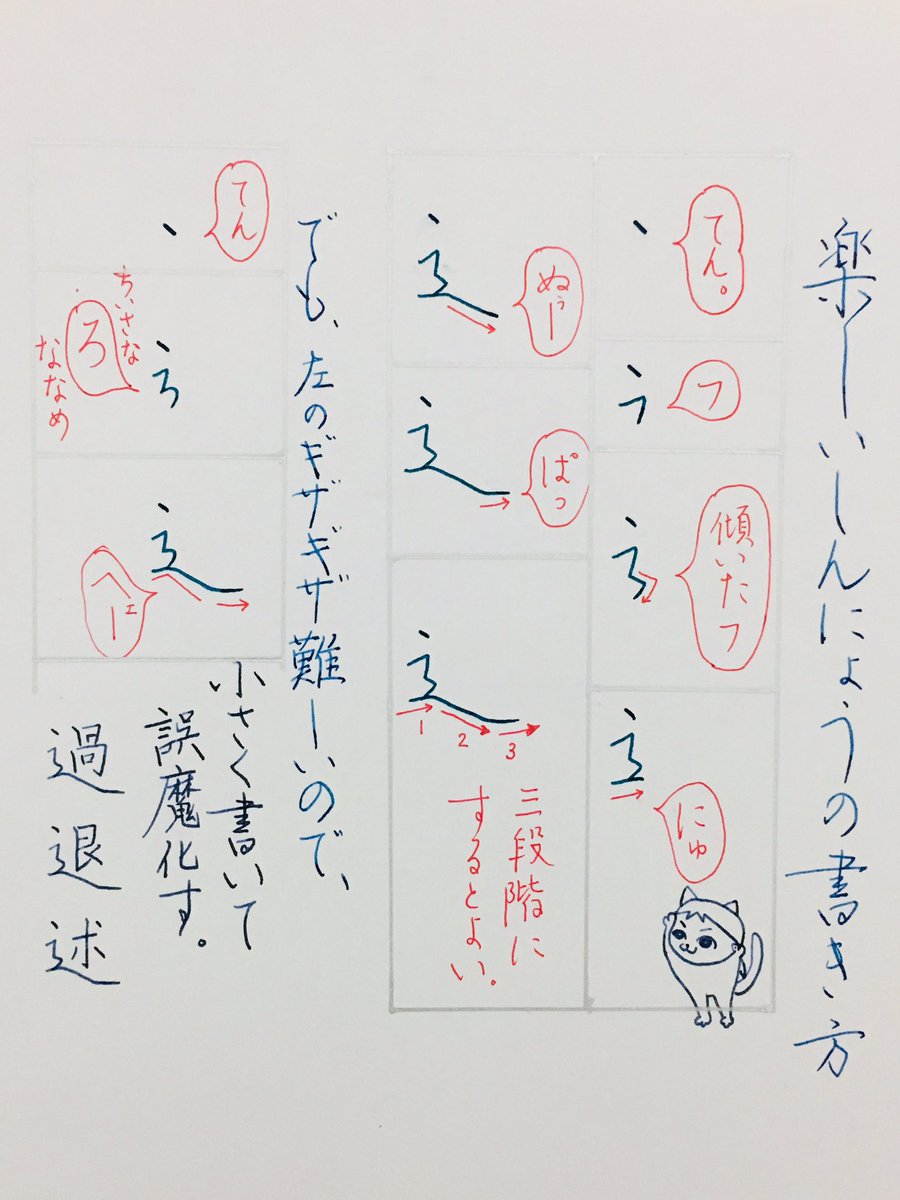 楽ーいしんにょうの書き方
てん。
フ
傾いたフ
にゅ
ぬぅー
ぱっ
1
2
3
三段階に
するとよい。
でも、左のギザギザ難ーいので、
小さく書いて
誤魔化す。
てん
ちいさな
ろ
ななめ
へーェ
過退述